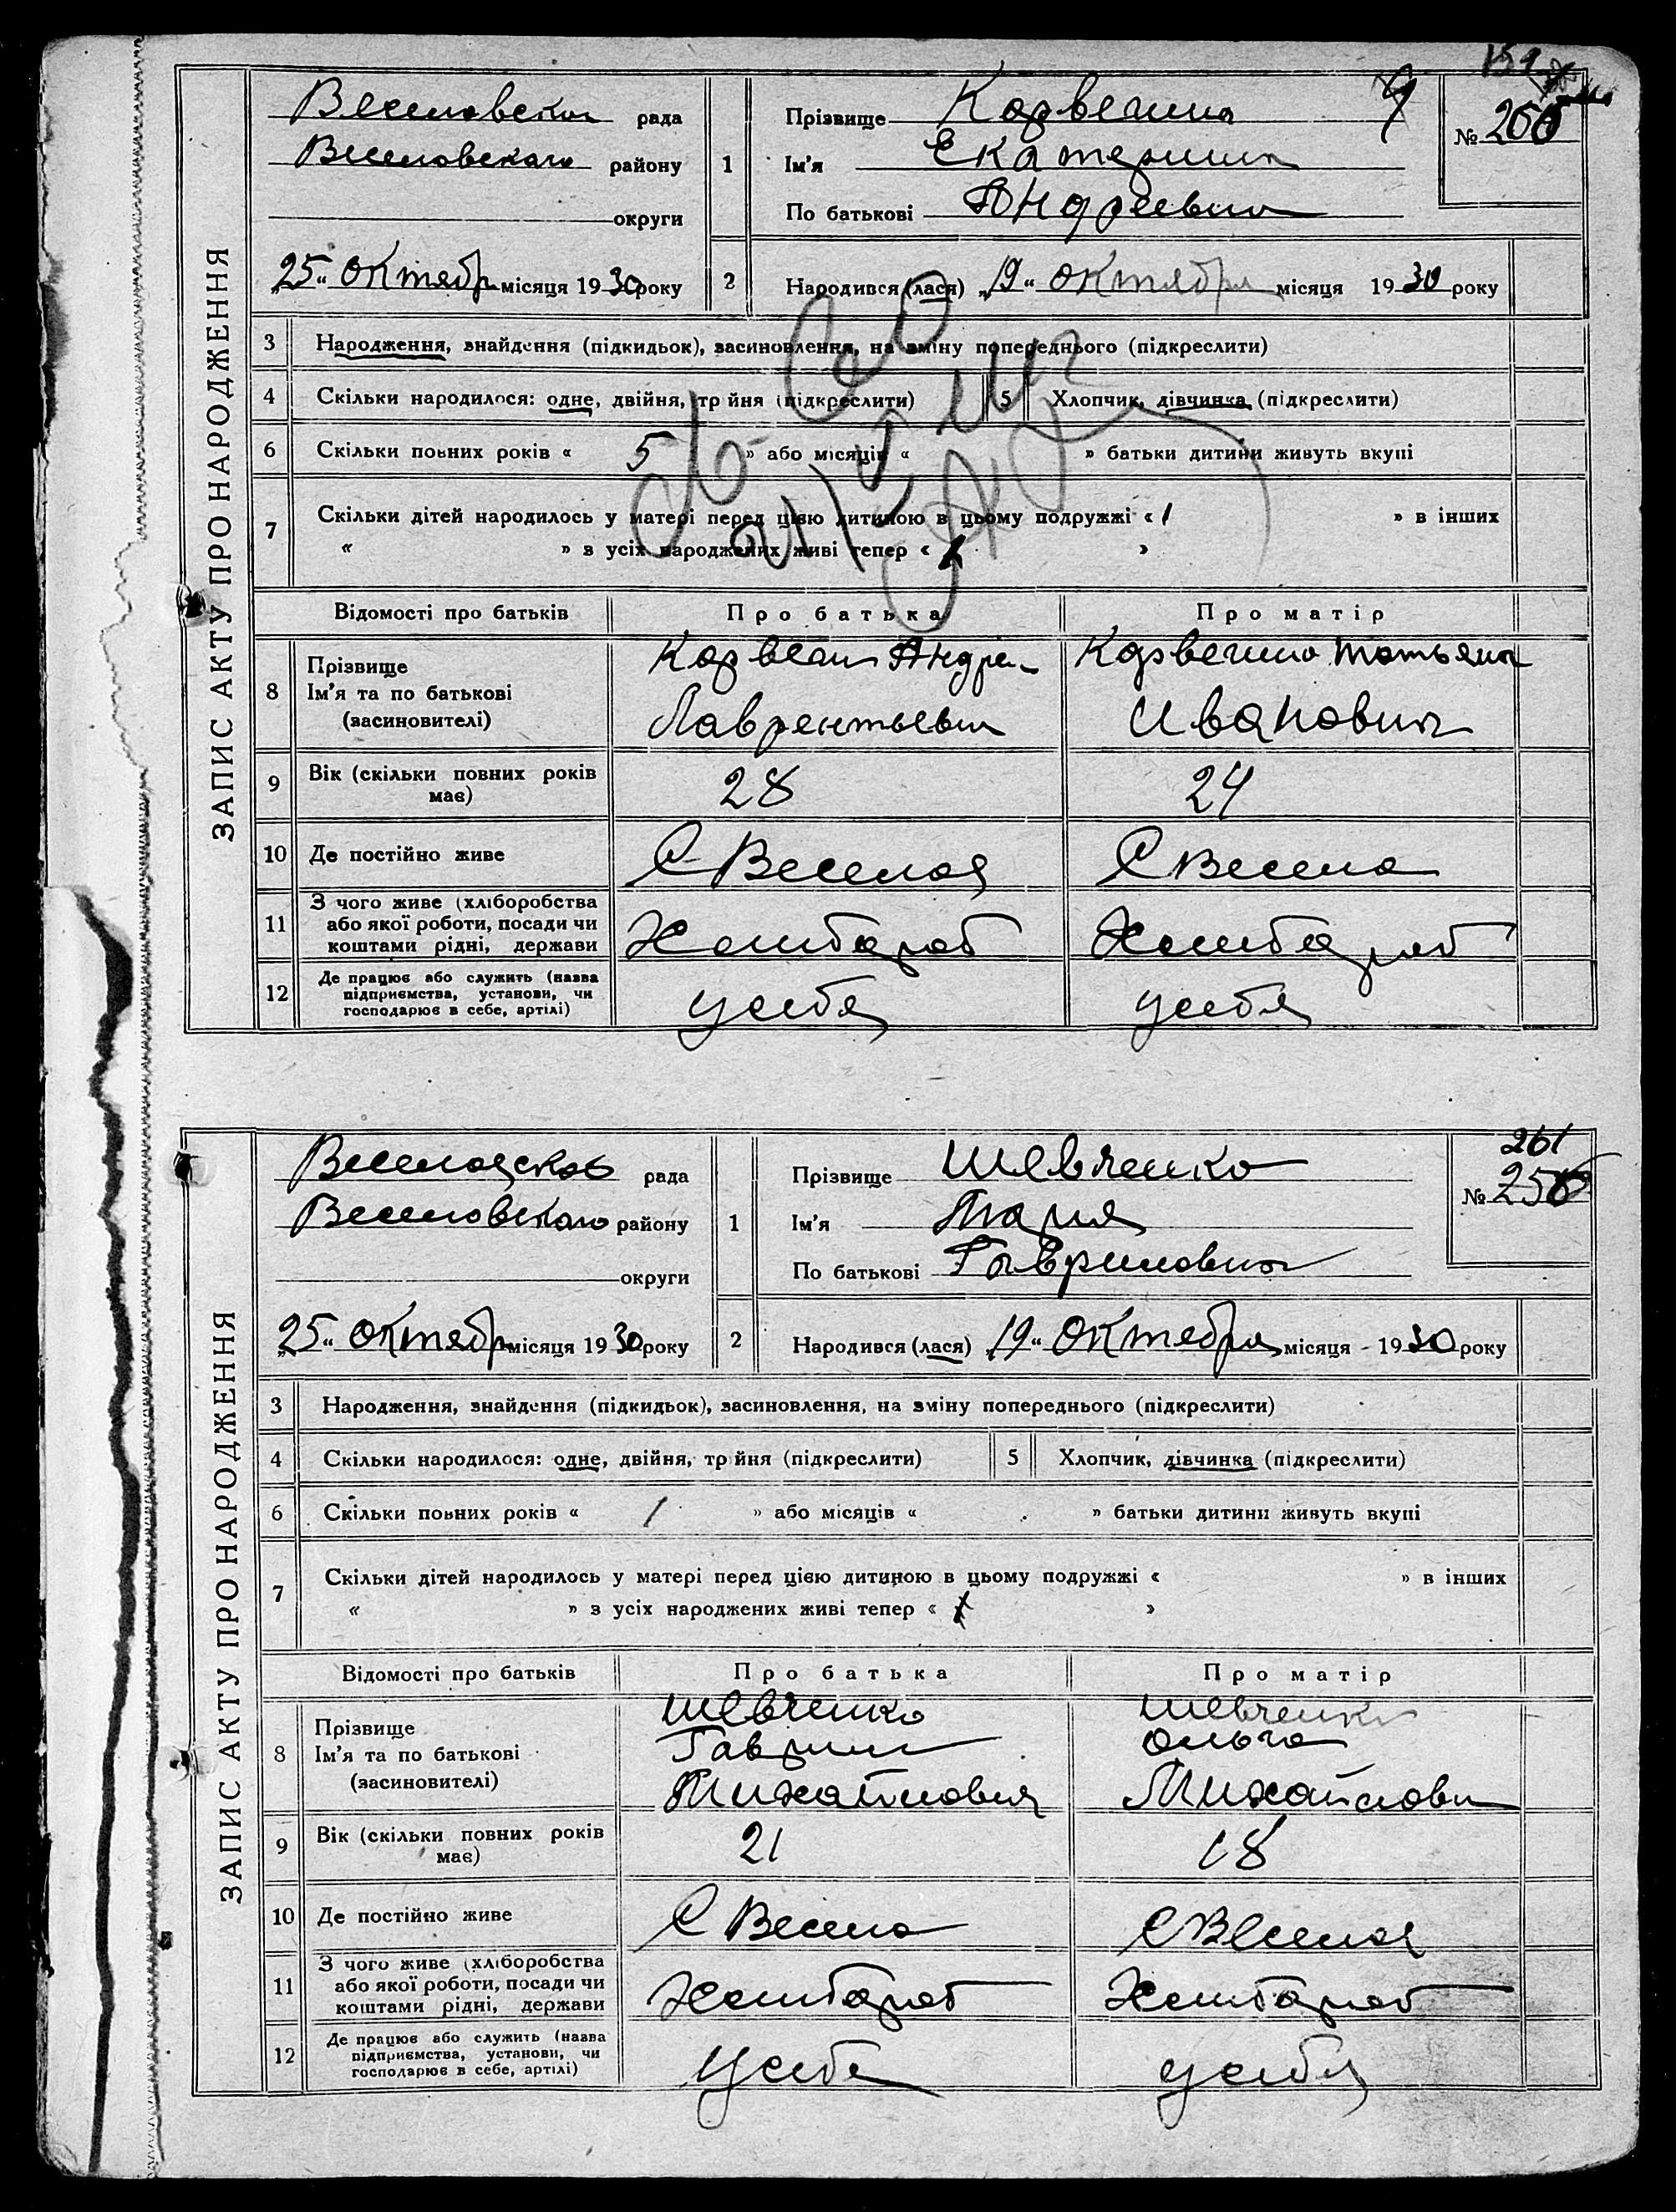 ЗАПИС АКТУ ПРО НАРОДЖЕННЯ
рада
Веселовскаго району
округи
„25“ Октябр місяця 1930 року
1
Прізвище
Ім’я Екатерина
По батькові Андреевна
№
2
Народився (лася) „19“ Октября місяця 1930 року
3 Народження, знайдення (підкидьок), засиновлення, на зміну попереднього (підкреслити)
4 Скільки народилося: одне, двійня, тр йня (підкреслити) 5 Хлопчик, дівчинка (підкреслити)
6 Скільки повних років « 5 » або місяців « » батьки дитини живуть вкупі
7 Скільки дітей народилось у матері перед цією дитиною в цьому подружжі « 1 » в інших
« » з усіх народжених живі тепер « »
Відомості про батьків Про батька Про матір
8 Прізвище
Ім’я та по батькові
(засиновителі)
Андре
Лаврентьевич
Татьяна
Ивановна
9 Вік (скільки повних років має) 28 24
10 Де постійно живе С Веселая С Весела
11 З чого живе (хліборобства або якої роботи, посади чи коштами рідні, держави Хлибароб Хлибароб
12 Де працює або служить (назва підприємства, установи, чи господарює в себе, артілі) у себя у себя
ЗАПИС АКТУ ПРО НАРОДЖЕННЯ
рада
Веселовскаго району
округи
„25“ Октябр місяця 1930 року
1
Прізвище Шевченко
Ім’я Мария
По батькові Гавриловна
261
№
2
Народився (лася) „19“ Октября місяця 1930 року
3 Народження, знайдення (підкидьок), засиновлення, на зміну попереднього (підкреслити)
4 Скільки народилося: одне, двійня, тр йня (підкреслити) 5 Хлопчик, дівчинка (підкреслити)
6 Скільки повних років « 1 » або місяців « » батьки дитини живуть вкупі
7 Скільки дітей народилось у матері перед цією дитиною в цьому подружжі « » в інших
« » з усіх народжених живі тепер « »
Відомості про батьків Про батька Про матір
8 Прізвище
Ім’я та по батькові
(засиновителі)
Шевченко
Гаврил
Михайлович
Шевченко
Ольга
Михайловн
9 Вік (скільки повних років має) 21 18
10 Де постійно живе С Весела С Веселая
11 З чого живе (хліборобства або якої роботи, посади чи коштами рідні, держави Хлибароб Хлибароб
12 Де працює або служить (назва підприємства, установи, чи господарює в себе, артілі) у себе у себя